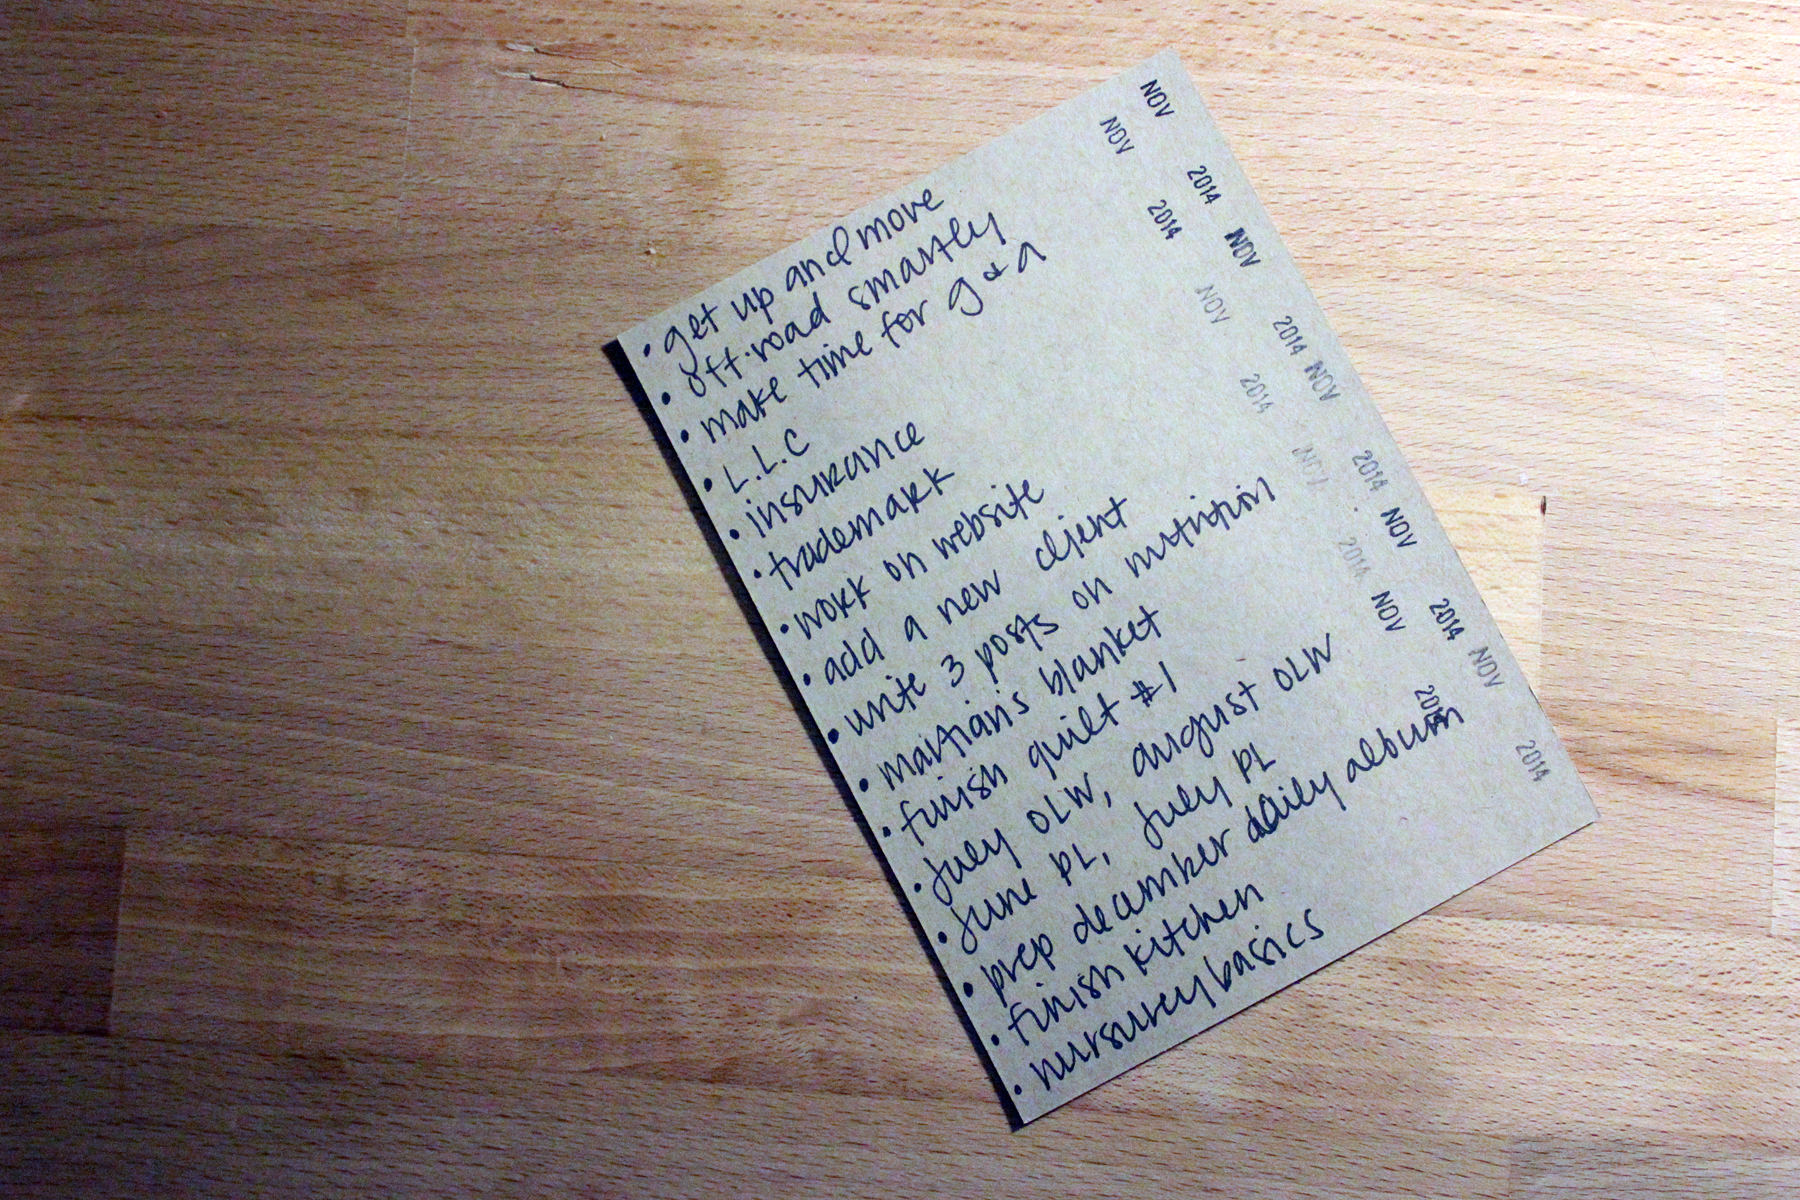 • get up and move
• off.road smartly
• make time for g & a
• L.L.C
• insurance
• trademark
• work on website
• add a new client
• write 3 posts on nutrition
• martian's blanket
• finish quilt #1
• july OLW, august OLW
• june PL, july PL
• prep december daily album
• finish kitchen
• nursurey basics
NOV 2014
NOV 2014
NOV 2014
NOV 2014
NOV 2014
NOV 2014
NOV 2014
NOV 2014
NOV 2014